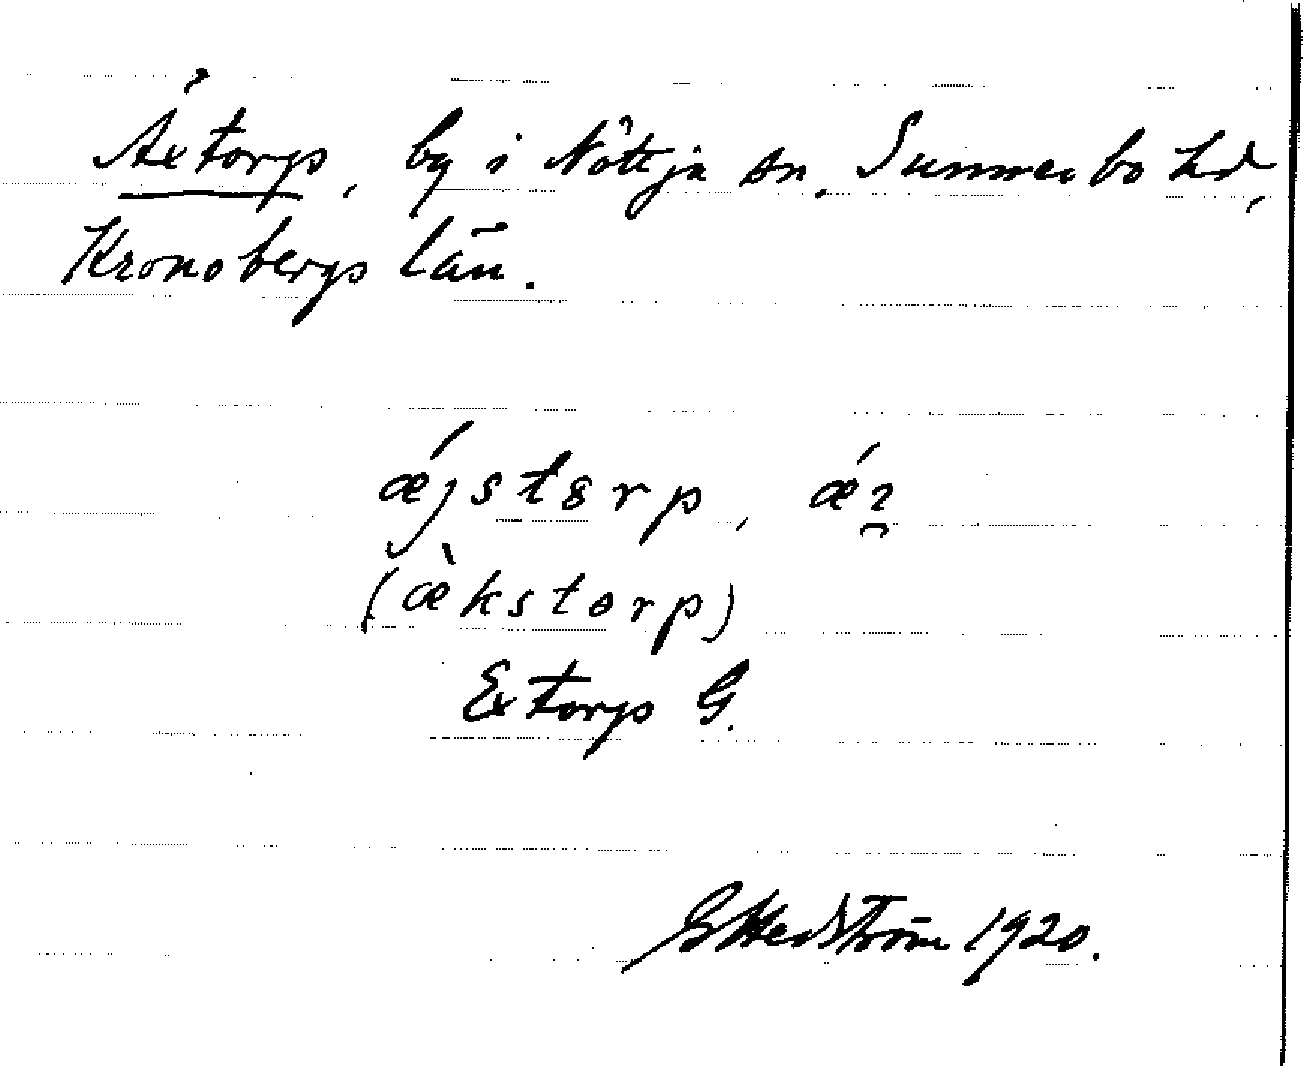 Äxtorp, by i Nöttja sn, Sunnerbo hd,
Kronobergs län.
ǽjstɵrp, ǽ
(æ̀kstorp)
Extorp G.
G Hedström 1920.